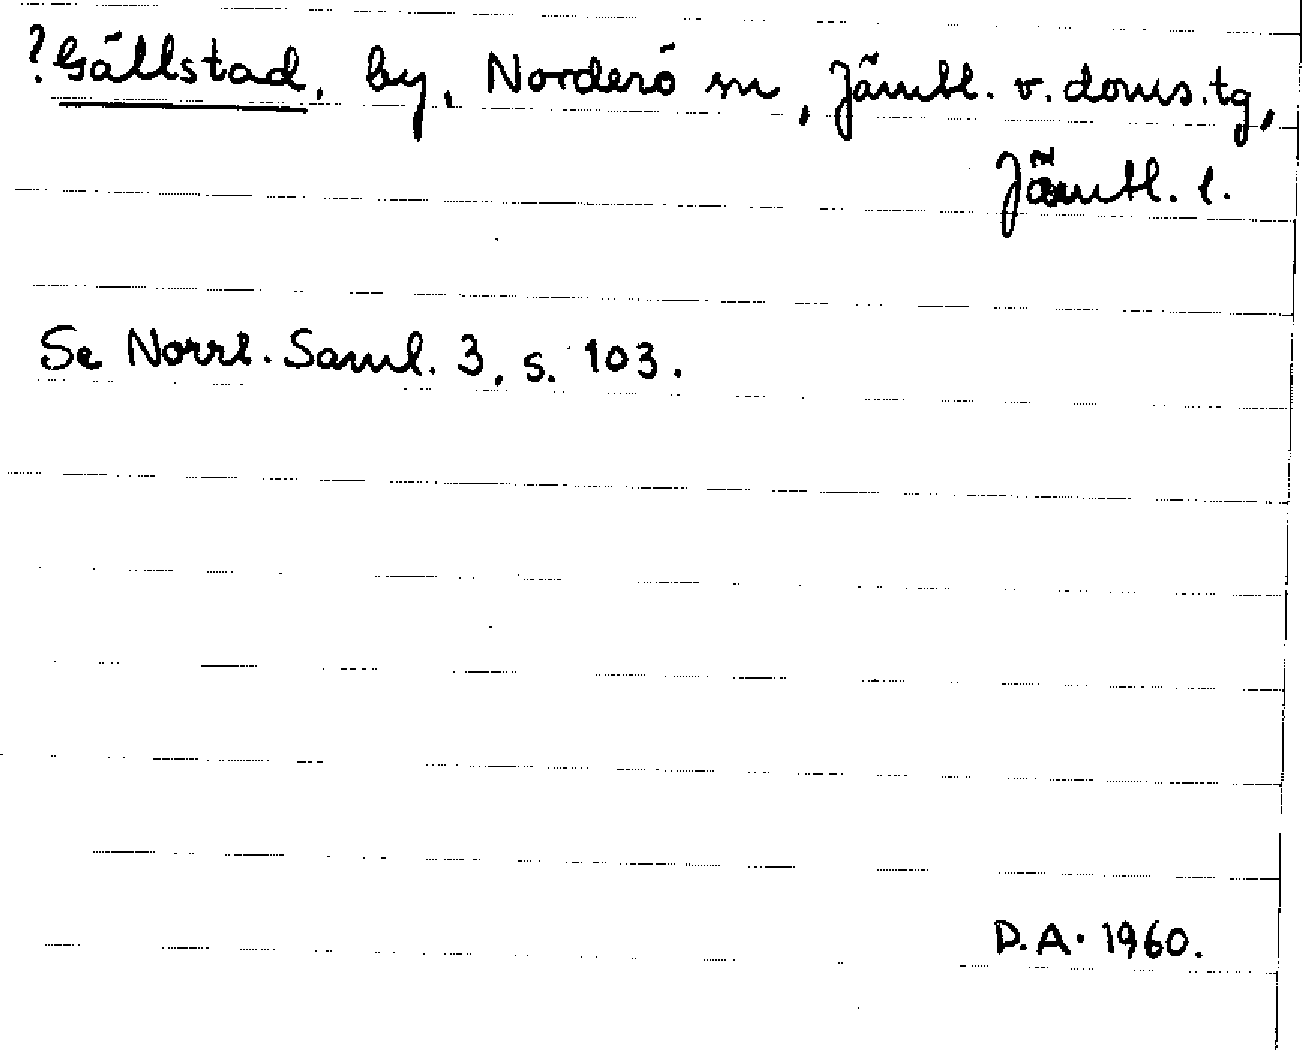 ?Gällstad, by, Norderö sn, Jämtl. v. doms.tg,
Jämtl. l.
Se Norrl. Saml. 3, s. 103.
D.A. 1960.